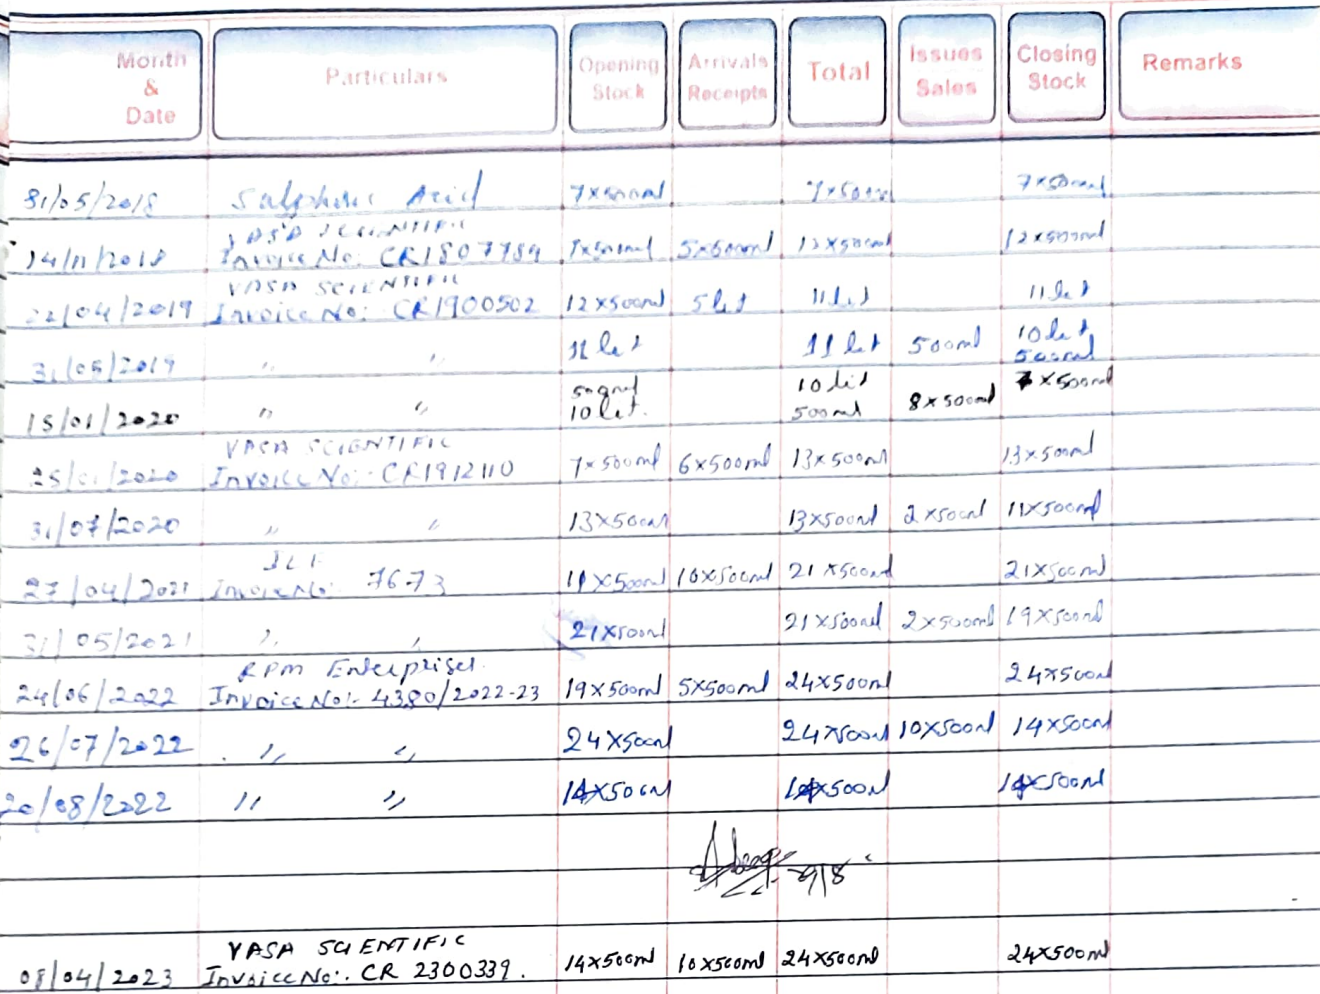 Month & Date Particulars Opening Stock Arrivals Receipts Total Issues Sales Closing Stock Remarks
31/05/2018 Sulphuric Acid 7x500ml 7x500ml 7x500ml
VASA SCIENTIFIC
14/11/2018 Invoice No: CR1807789 7x500ml 5x500ml 12x500ml 12x500ml
VASA SCIENTIFIC
22/04/2019 Invoice No: CR1900502 12x500ml 5let 11let 11let
31/05/2019 " " 11let 11let 500ml 10let 500ml
15/01/2020 " " 500ml 10let. 10lit 500ml 8x500ml 7x500ml
VASA SCIENTIFIC
25/01/2020 Invoice No:- CR1912110 7x500ml 6x500ml 13x500ml 13x500ml
31/07/2020 " " 13x500ml 13x500ml 2x500ml 11x500ml
27/04/2021 Invoice No: 7673 11x500ml 10x500ml 21x500ml 21x500ml
31/05/2021 " " 21x500ml 21x500ml 2x500ml 19x500ml
RPM Enterprises.
24/06/2022 Invoice No:- 4380/2022-23 19x500ml 5x500ml 24x500ml 24x500ml
26/07/2022 " " 24x500ml 24x500ml 10x500ml 14x500ml
20/08/2022 " " 14x500ml 14x500ml 14x500ml
VASA SCIENTIFIC
08/04/2023 Invoice No:. CR 2300339. 14x500ml 10x500ml 24x500ml 24x500ml